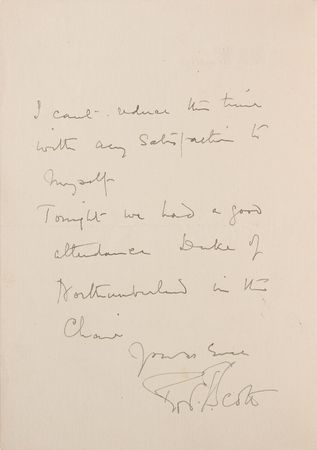 I can't reduce the time
with any satisfaction to
myself
Tonight we had a good
attendance Duke of
Northumberland in the
Chair
Yours Since
Scott